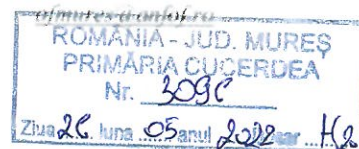 ROMÂNIA - JUD. MUREȘ
PRIMĂRIA CUCERDEA
Nr. 3096
Ziua 26. luna 05 anul 2022